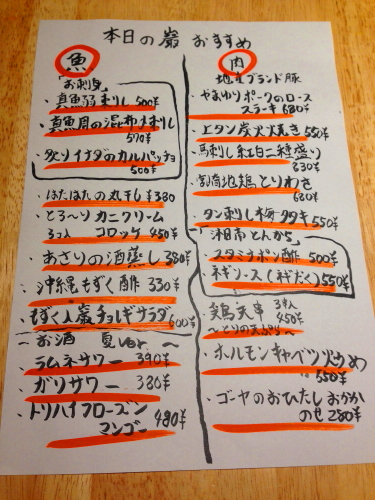 本日の巌 おすすめ
魚
「お刺身」
・真魚弱 刺し 500¥
・真魚周の混布〆刺し
570¥
・炙りイナダのカルパッチョ
500¥
・はたはたの丸干し ¥380
・とろ〜り カニクリーム
3コ入 コロッケ 450¥
・あさりの酒蒸し 380¥
・沖縄もずく酢 330¥
・もずく入巌チョレギサラダ
600¥
〜お酒 夏Ver〜
・ラムネサワー 390¥
・ガリサワー 380¥
・トリハイフローズン
マンゴー 480¥
肉
地産ブランド豚
・やまゆりポークのロース
ステーキ 680¥
・上タン炭火焼き 550¥
・馬刺し 紅白二種盛り
830¥
・宮崎地鶏 とりわさ
680¥
・タン刺し梅タタキ 550¥
「湘南とんから」
・スタミナポン酢 500¥
・ネギソース(ネギだく) 550¥
・鶏天串 3本入
450¥
〜とりの天ぷら〜
・ホルモンキャベツ炒め
550¥
・ゴーヤのおひたし おかか
のせ 280¥